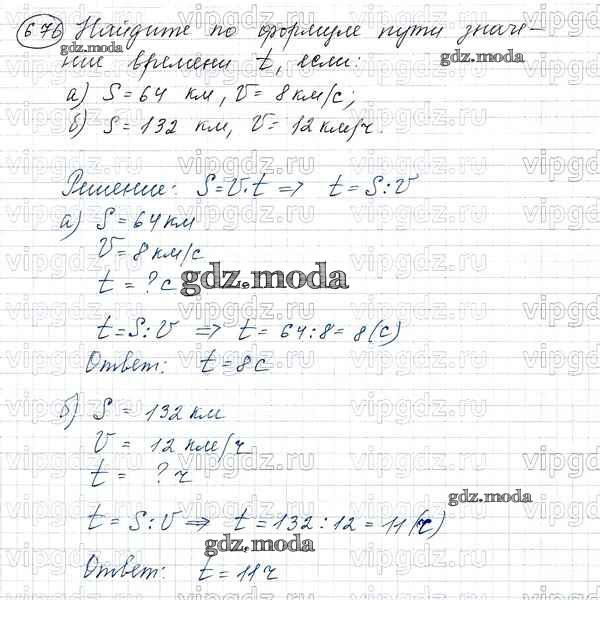 676 Найдите по формуле пути значе-
ние времени t, если:
а) S = 64 км, V = 8 км/с;
б) S = 132 км, V = 12 км/ч.
Решение: S = V · t => t = S : V
а) S = 64 км
V = 8 км/с
t = ? с
t = S : V => t = 64 : 8 = 8 (с)
Ответ: t = 8 с
б) S = 132 км
V = 12 км/ч
t = ? ч
t = S : V => t = 132 : 12 = 11 (ч)
Ответ: t = 11 ч
gdz.moda
gdz.moda
gdz.moda
gdz.moda
gdz.moda
vipgdz.ru